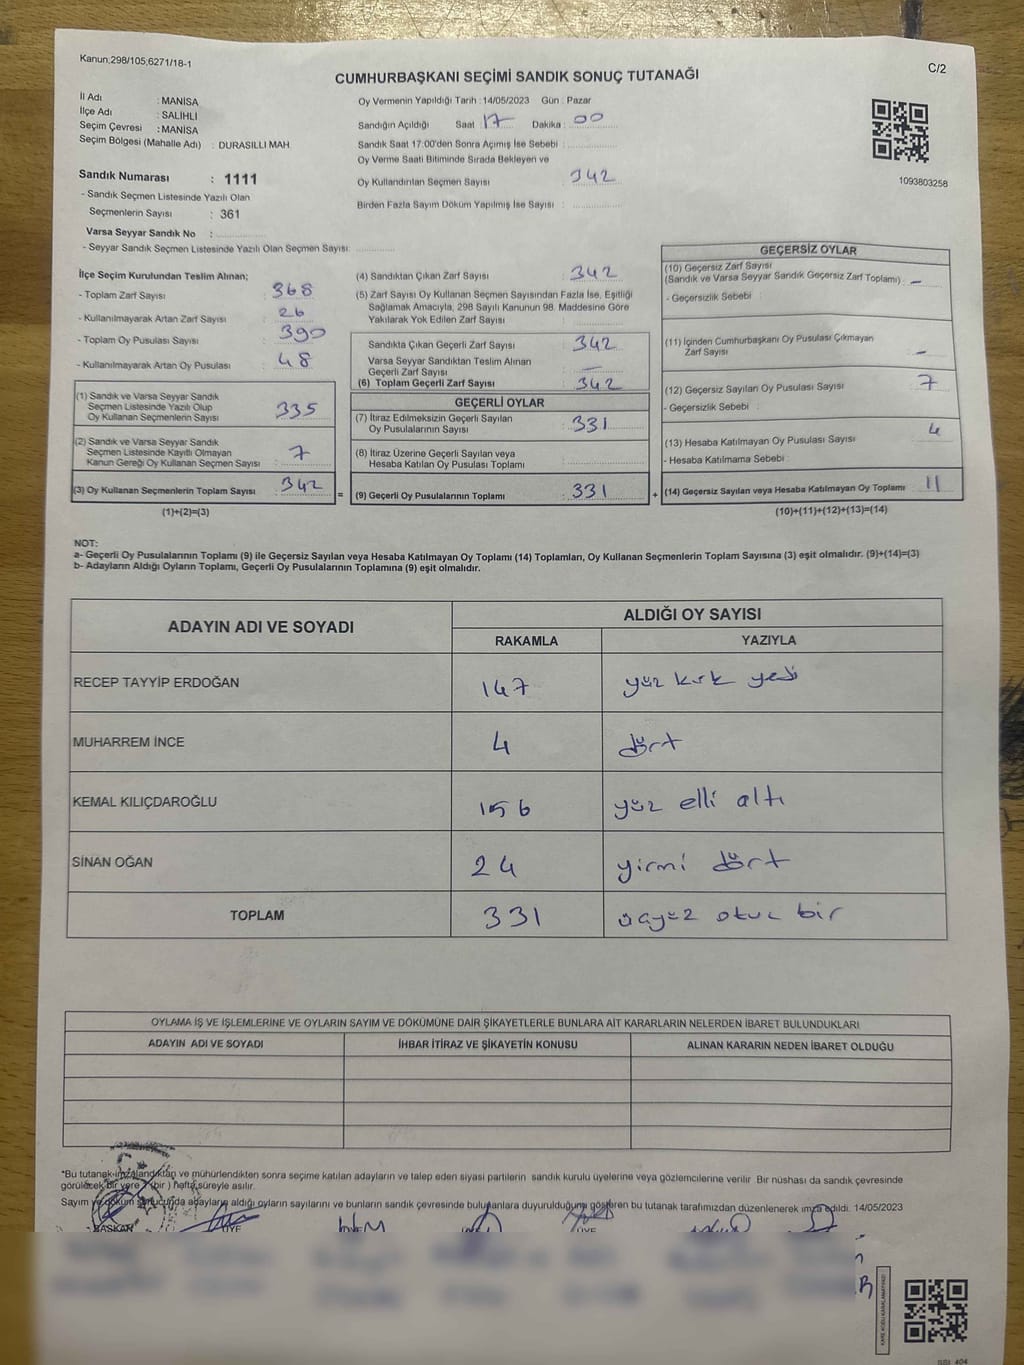 Kanun;298/105;6271/18-1
C/2
CUMHURBAŞKANI SEÇİMİ SANDIK SONUÇ TUTANAĞI
İl Adı : MANİSA
İlçe Adı : SALİHLİ
Seçim Çevresi : MANİSA
Seçim Bölgesi (Mahalle Adı) : DURASILLI MAH.
Sandık Numarası : 1111
- Sandık Seçmen Listesinde Yazılı Olan
Seçmenlerin Sayısı : 361
Varsa Seyyar Sandık No :
- Seyyar Sandık Seçmen Listesinde Yazılı Olan Seçmen Sayısı:
Oy Vermenin Yapıldığı Tarih : 14/05/2023 Gün : Pazar
Sandığın Açıldığı Saat : 17 Dakika : 00
Sandık Saat 17:00'den Sonra Açımış İse Sebebi :
Oy Verme Saati Bitiminde Sırada Bekleyen ve
Oy Kullandırılan Seçmen Sayısı : 342
Birden Fazla Sayım Döküm Yapılmış İse Sayısı :
1093803258
İlçe Seçim Kurulundan Teslim Alınan;
- Toplam Zarf Sayısı : 368
- Kullanılmayarak Artan Zarf Sayısı : 26
- Toplam Oy Pusulası Sayısı : 390
- Kullanılmayarak Artan Oy Pusulası : 48
(1) Sandık ve Varsa Seyyar Sandık
Seçmen Listesinde Yazılı Olup
Oy Kullanan Seçmenlerin Sayısı : 335
(2) Sandık ve Varsa Seyyar Sandık
Seçmen Listesinde Kayıtlı Olmayan
Kanun Gereği Oy Kullanan Seçmen Sayısı : 7
(3) Oy Kullanan Seçmenlerin Toplam Sayısı : 342
(1)+(2)=(3)
(4) Sandıktan Çıkan Zarf Sayısı : 342
(5) Zarf Sayısı Oy Kullanan Seçmen Sayısından Fazla İse, Eşitliği
Sağlamak Amacıyla, 298 Sayılı Kanunun 98. Maddesine Göre
Yakılarak Yok Edilen Zarf Sayısı :
Sandıkta Çıkan Geçerli Zarf Sayısı : 342
Varsa Seyyar Sandıktan Teslim Alınan
Geçerli Zarf Sayısı : -
(6) Toplam Geçerli Zarf Sayısı : 342
GEÇERLİ OYLAR
(7) İtiraz Edilmeksizin Geçerli Sayılan
Oy Pusulalarının Sayısı : 331
(8) İtiraz Üzerine Geçerli Sayılan veya
Hesaba Katılan Oy Pusulası Toplamı :
= (9) Geçerli Oy Pusulalarının Toplamı : 331 +
GEÇERSİZ OYLAR
(10) Geçersiz Zarf Sayısı
(Sandık ve Varsa Seyyar Sandık Geçersiz Zarf Toplamı) : -
- Geçersizlik Sebebi :
(11) İçinden Cumhurbaşkanı Oy Pusulası Çıkmayan
Zarf Sayısı : -
(12) Geçersiz Sayılan Oy Pusulası Sayısı : 7
- Geçersizlik Sebebi :
(13) Hesaba Katılmayan Oy Pusulası Sayısı : 4
- Hesaba Katılmama Sebebi :
(14) Geçersiz Sayılan veya Hesaba Katılmayan Oy Toplamı : 11
(10)+(11)+(12)+(13)=(14)
NOT:
a- Geçerli Oy Pusulalarının Toplamı (9) ile Geçersiz Sayılan veya Hesaba Katılmayan Oy Toplamı (14) Toplamları, Oy Kullanan Seçmenlerin Toplam Sayısına (3) eşit olmalıdır. (9)+(14)=(3)
b- Adayların Aldığı Oyların Toplamı, Geçerli Oy Pusulalarının Toplamına (9) eşit olmalıdır.
ADAYIN ADI VE SOYADI
ALDIĞI OY SAYISI
RAKAMLA YAZIYLA
RECEP TAYYİP ERDOĞAN 147 yüz kırk yedi
MUHARREM İNCE 4 dört
KEMAL KILIÇDAROĞLU 156 yüz elli altı
SİNAN OĞAN 24 yirmi dört
TOPLAM 331 üçyüz otuz bir
OYLAMA İŞ VE İŞLEMLERİNE VE OYLARIN SAYIM VE DÖKÜMÜNE DAİR ŞİKAYETLERLE BUNLARA AİT KARARLARIN NELERDEN İBARET BULUNDUKLARI
ADAYIN ADI VE SOYADI İHBAR İTİRAZ VE ŞİKAYETİN KONUSU ALINAN KARARIN NEDEN İBARET OLDUĞU
*Bu tutanak imzalandıktan ve mühürlendikten sonra seçime katılan adayların ve talep eden siyasi partilerin sandık kurulu üyelerine veya gözlemcilerine verilir Bir nüshası da sandık çevresinde
görülecek bir yere 7 (bir ) hafta süreyle asılır.
Sayım ve döküm sonucunda adayların aldığı oyların sayılarını ve bunların sandık çevresinde bulunanlara duyurulduğunu gösteren bu tutanak tarafımızdan düzenlenerek imza edildi. 14/05/2023
BAŞKAN ÜYE ÜYE